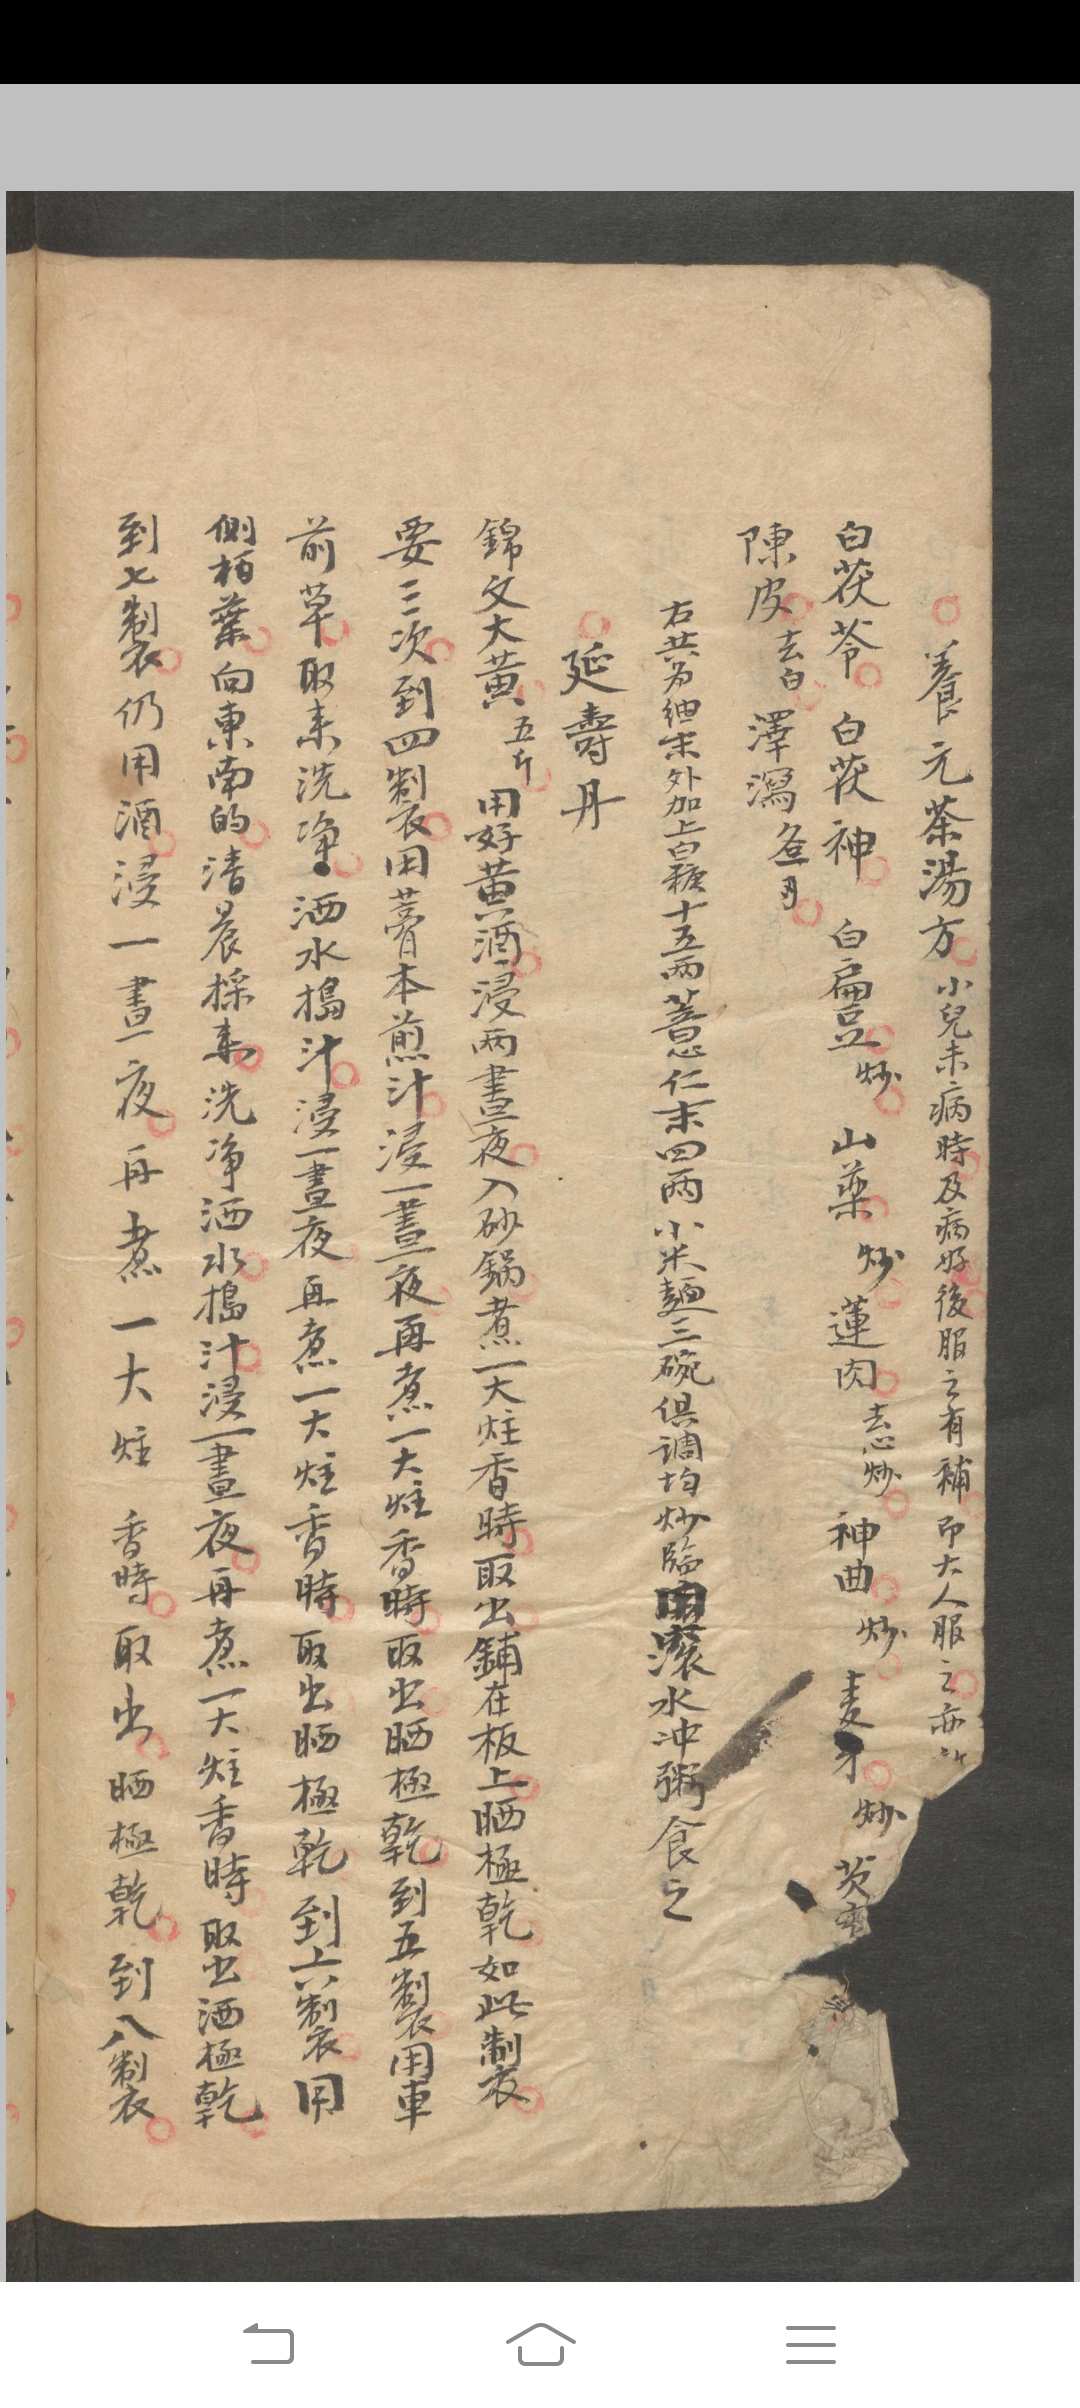 養元茶湯方小兒未病時及病好後服之有補即大人服之亦
白茯苓 白茯神 白扁豆炒 山藥炒 蓮肉去心炒 神曲炒 麦芽炒 芡
陳皮去白 澤瀉
右共為細末外加上白糖十五兩薏仁末四兩小米麵三碗俱調均炒臨用滾水冲粥食之
延壽丹
錦文大黄五斤 用好黄酒浸兩晝夜入砂鍋煮一大炷香時取出鋪在板上晒極乾如此製
要三次到四製用藁本煎汁浸一晝夜再煮一大炷香時取出晒極乾到五製用車
前草取来洗净洒水搗汁浸一晝夜再煮一大炷香時取出晒極乾到六製用
側柏葉向東南的清晨採来洗净洒水搗汁浸一晝夜再煮一大炷香時取出洒極乾
到七製仍用酒浸一晝夜再煮一大炷香時取出晒極乾到八製